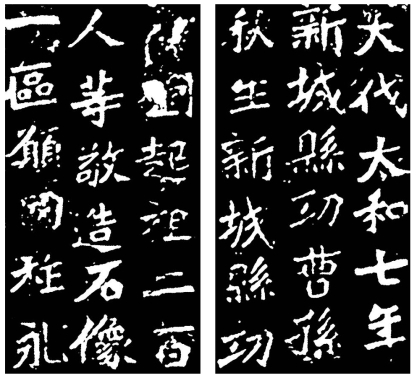 大代太和七年
新城縣功曹孫
秋生新城縣功
曹劉起祖二百
人等敬造石像
一區願國祚永